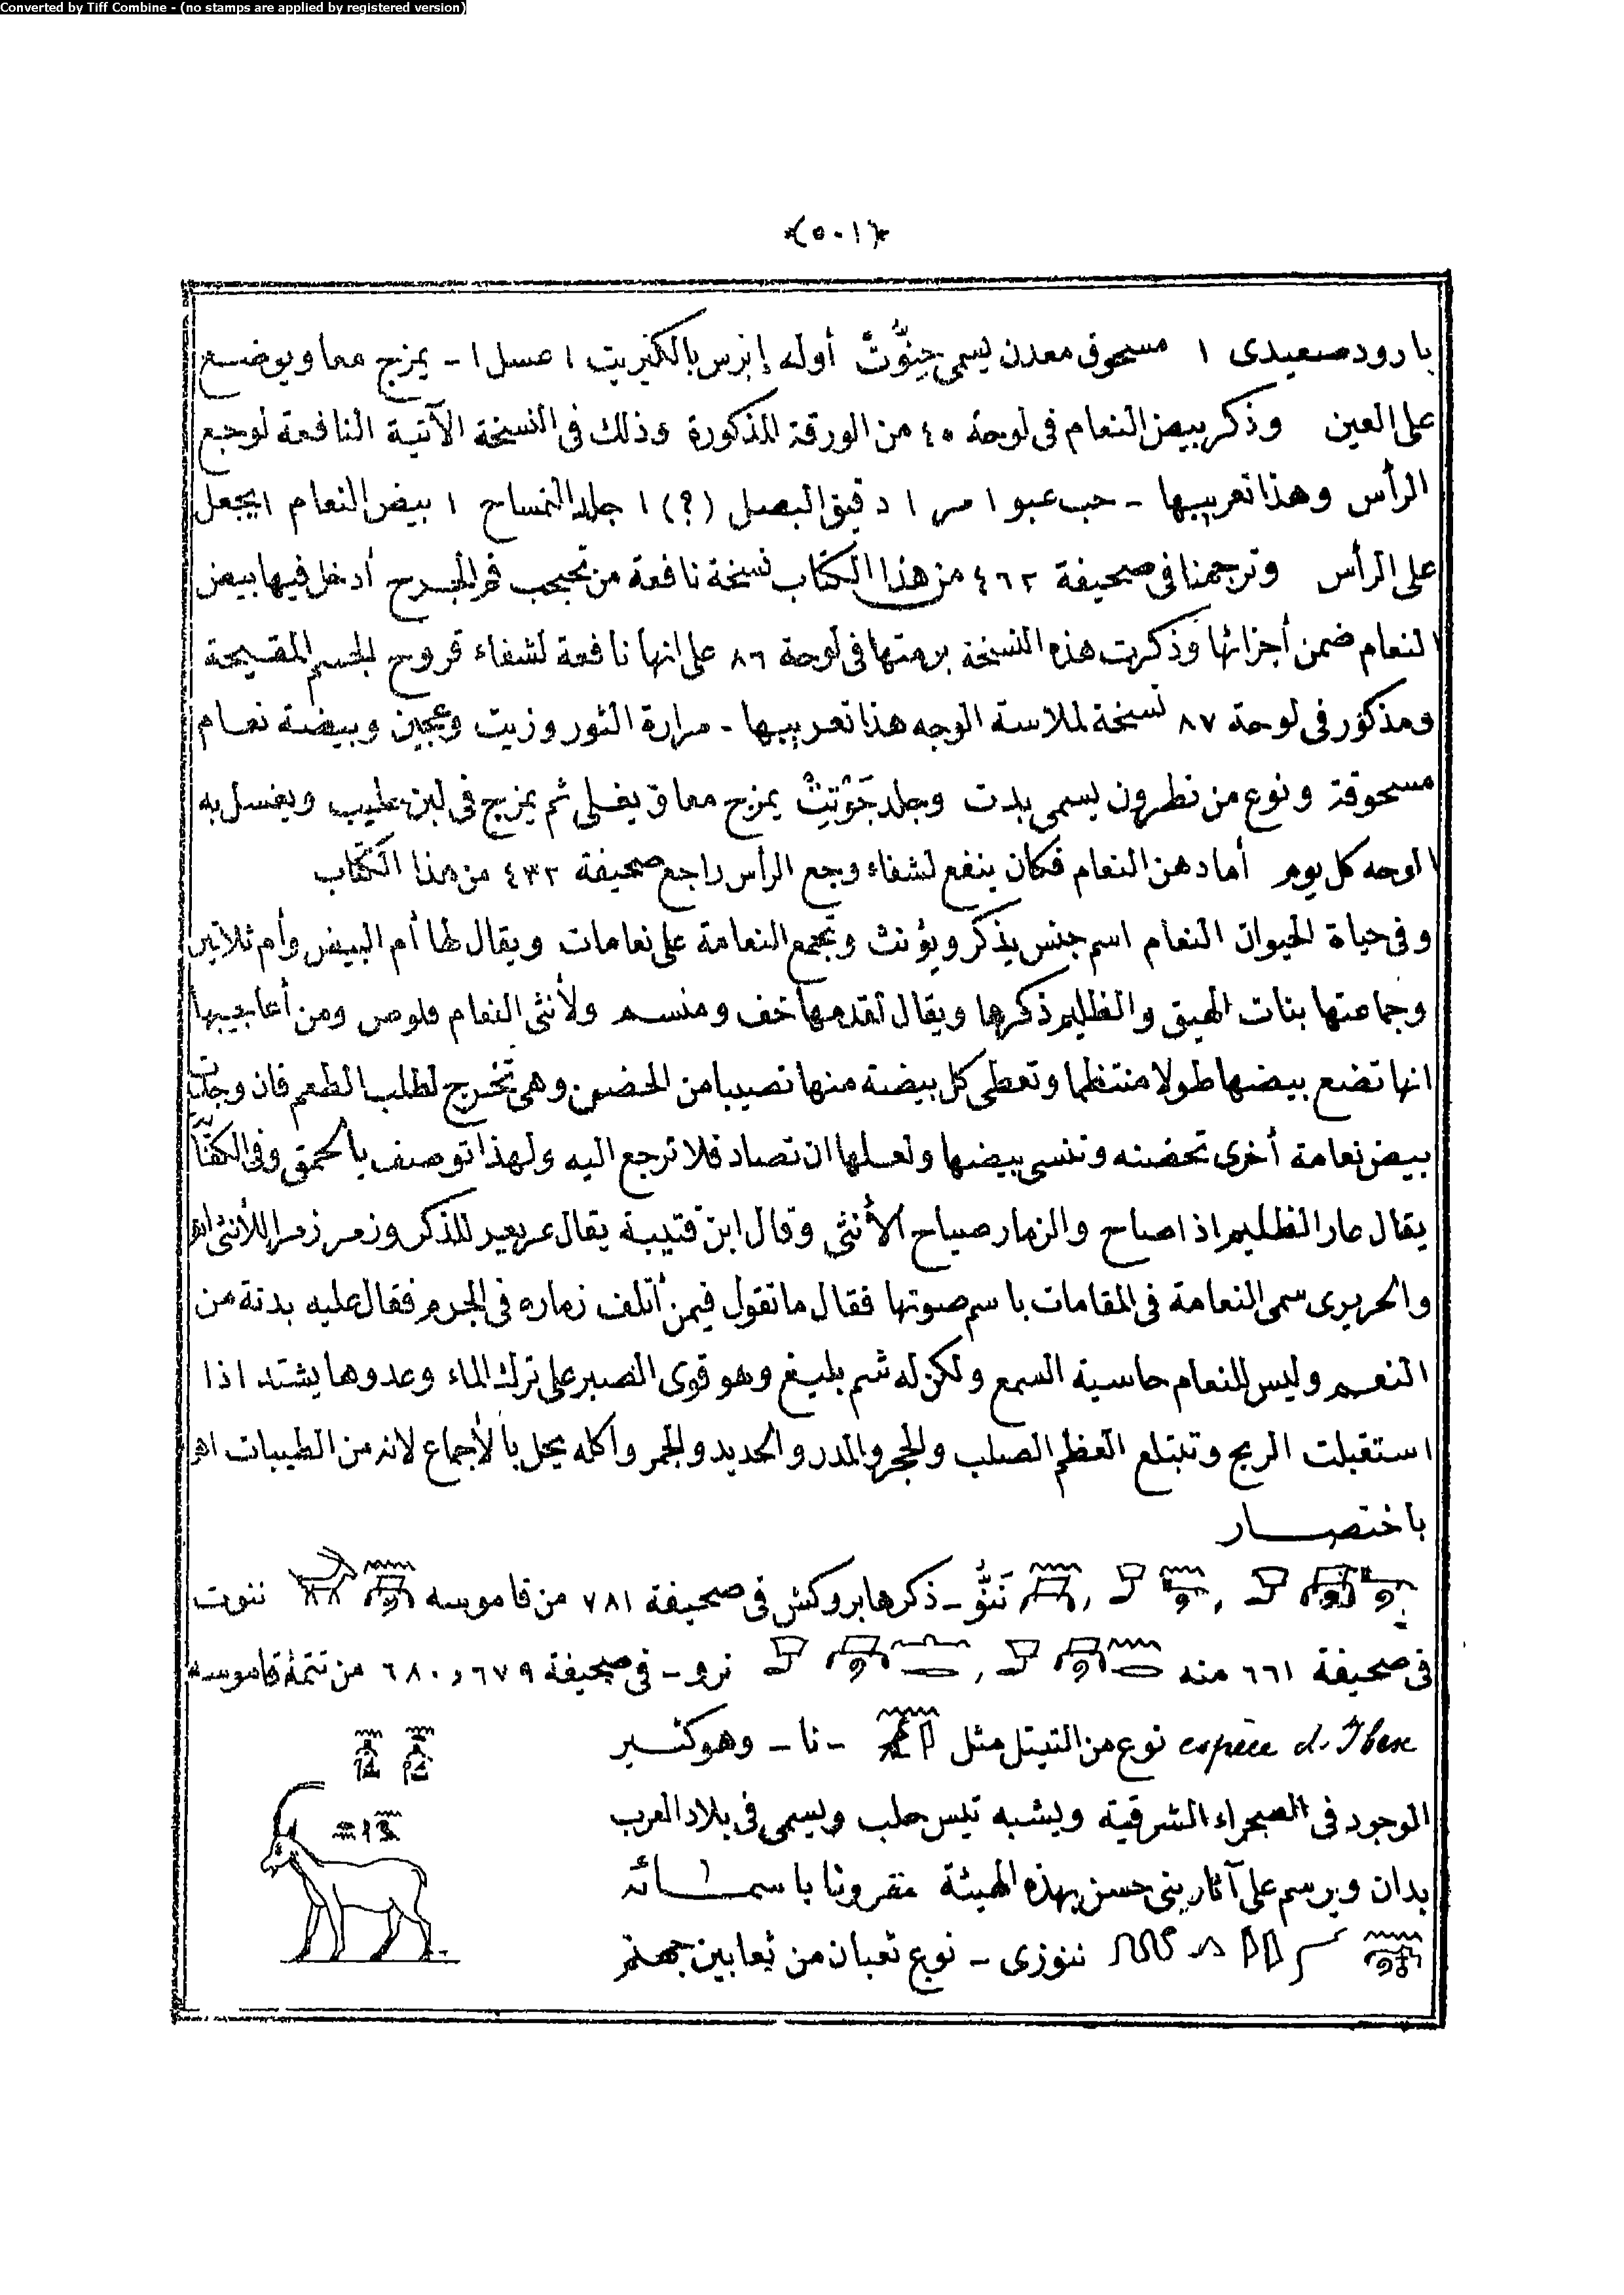 Converted by Tiff Combine - (no stamps are applied by registered version)
*(٥٠١)*
بارود صعيدى ١ مسحوق معدن يسمى أوله إبرس بالكبريت ١ عسل ١ - يمزج معا ويوضع
على العين وذكر بيض النعام فى لوحة ٤٥ من الورقة المذكورة وذلك فى النسخة الآتية النافعة لوجع
الرأس وهذا تعريبها - حب عبو ١ مر ١ دقيق البصل (؟) ١ جلد التمساح ١ بيض النعام ١ يجعل
على الرأس وترجمنا فى صحيفة ٤٦٢ من هذا الكتاب نسخة نافعة من الجرح أدخل فيها بيض
النعام ضمن أجزائها وذكرت هذه النسخة برمتها فى لوحة ٨٦ على انها نافعة لشفاء قروح الجسم المقيحة
ومذكور فى لوحة ٨٧ نسخة لملاسة الوجه هذا تعريبها - مرارة الثور وزيت وعجين وبيضة نعام
مسحوقة ونوع من نطرون يسمى بدت وجلد يمزج معا ويغلى ثم يمزج فى لبن حليب ويغسل به
الوجه كل يوم أما دهن النعام فكان ينفع لشفاء وجع الرأس راجع صحيفة ٤٣٢ من هذا الكتاب
وفى حياة الحيوان النعام اسم جنس يذكر ويؤنث وتجمع النعامة على نعامات ويقال لها أم البيض وأم ثلاثين
وجماعتها بنات الهيق والظليم ذكرها ويقال لقدمها خف ومنسم ولأنثى النعام قلوص ومن أعاجيبها
انها تضع بيضها طولا منتظما وتعطى كل بيضة منها نصيبا من الحضن وهى تخرج لطلب الطعم فان وجدت
بيض نعامة أخرى تحضنه وتنسى بيضها ولعلها ان تصاد فلا ترجع اليه ولهذا توصف بالحمق وفى الكفاية
يقال عار الظليم اذا صاح والزمار صياح الأنثى وقال ابن قتيبة يقال عر يعر للذكر وزمر زمرا للأنثى اه
والحريرى سمى النعامة فى المقامات باسم صوتها فقال ما تقول فيمن أتلف زماره فى الحرم فقال عليه بدنة من
النعم وليس للنعام حاسية السمع ولكن له شم بليغ وهو قوى الصبر على ترك الماء وعدوها يشتد اذا
استقبلت الريح وتبتلع العظم الصلب والحجر والمدر والحديد والجمر وأكله يحل بالأجماع لانه من الطيبات اه
باختصار
نَنَوُّ - ذكرها بروكش فى صحيفة ٧٨١ من قاموسه ننوت
فى صحيفة ٦٦١ منه نرو - فى صحيفة ٦٧٩ و ٦٨٠ من تتمة قاموسه
espèce d'Ibex نوع من التيتل مثل - نا - وهو كثير
الوجود فى الصحراء الشرقية ويشبه تيس حلب ويسمى فى بلاد العرب
بدان ويرسم على آثار بنى حسن بهذه الهيئة مقرونا باسمائه
ننوزى - نوع ثعبان من ثعابين جهنم